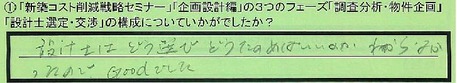 ①「新築コスト削減戦略セミナー」「企画設計編」の3つのフェーズ「調査分析・物件企画」
「設計士選定・交渉」の構成についていかがでしたか?
設計士はどう選びどうたのめばいいか わからなか
ったので Goodでした